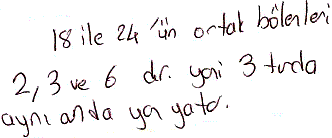 18 ile 24 'ün ortak bölenleri
2, 3 ve 6 dır. yani 3 turda
aynı anda yan yatar.